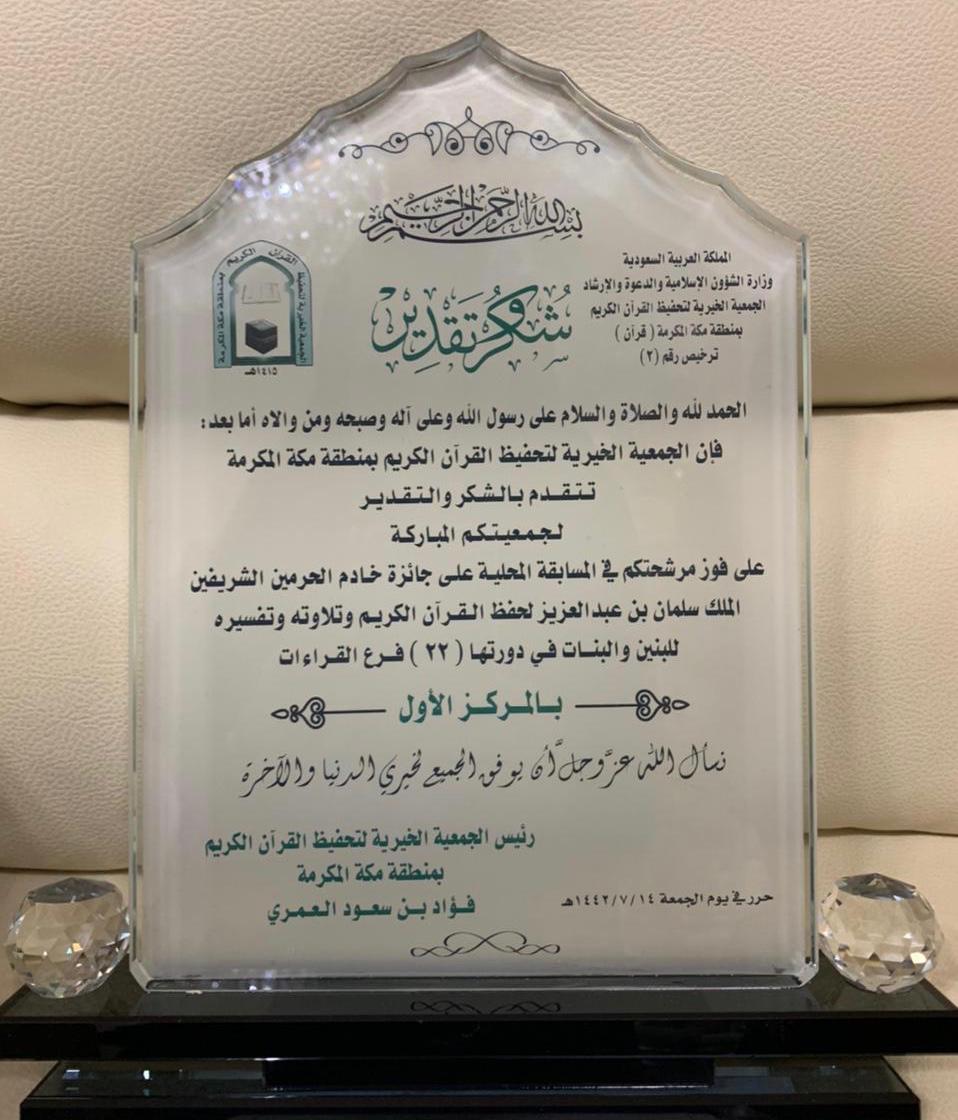 بسم الله الرحمن الرحيم
المملكة العربية السعودية
وزارة الشؤون الإسلامية والدعوة والإرشاد
الجمعية الخيرية لتحفيظ القرآن الكريم
بمنطقة مكة المكرمة ( قرآن )
ترخيص رقم (٢)
شُكر وتَقدير
الجمعية الخيرية لتحفيظ القرآن الكريم بمنطقة مكة المكرمة
١٤١٥هـ
الحمد لله والصلاة والسلام على رسول الله وعلى آله وصبحه ومن والاه أما بعد :
فإن الجمعية الخيرية لتحفيظ القرآن الكريم بمنطقة مكة المكرمة
تتقدم بالشكر والتقدير
لجمعيتكم المباركة
على فوز مرشحتكم في المسابقة المحلية على جائزة خادم الحرمين الشريفين
الملك سلمان بن عبدالعزيز لحفظ القرآن الكريم وتلاوته وتفسيره
للبنين والبنات في دورتها ( ٢٢ ) فرع القراءات
بالمركز الأول
نسأل الله عزَّ وجلَّ أن يوفق الجميع لخيري الدنيا والآخرة
رئيس الجمعية الخيرية لتحفيظ القرآن الكريم
بمنطقة مكة المكرمة
فؤاد بن سعود العمري
حرر في يوم الجمعة ١٤٤٢/٧/١٤هـ